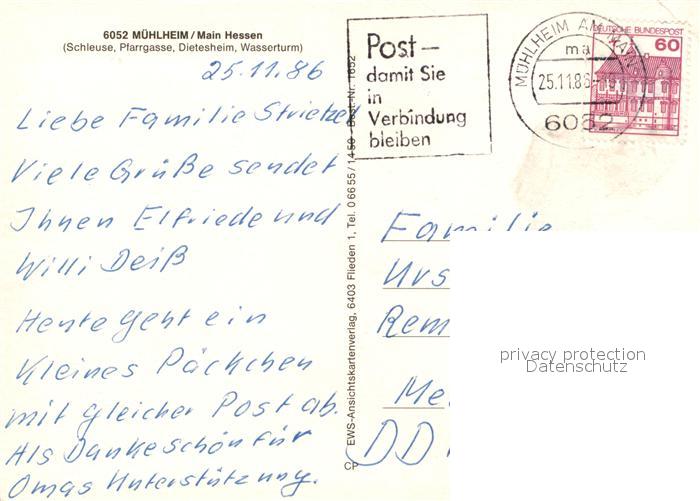 6052 MÜHLHEIM / Main Hessen
(Schleuse, Pfarrgasse, Dietesheim, Wasserturm)
25.11.86
Liebe Familie
Viele Grüße sendet
Ihnen Elfriede und
Willi Deiß
Heute geht ein
kleines Päckchen
mit gleicher Post ab.
Als Dankeschön für
Omas Unterstützung.
EWS-Ansichtskartenverlag, 6403 Flieden 1, Tel. 0 66 55 / 14 50 - Best.-Nr. 1652
CP
Post–
damit Sie
in
Verbindung
bleiben
MÜHLHEIM AM MAIN
ma
25.11.86
6052
DEUTSCHE BUNDESPOST
60
Familie
Urs
Rem
Me
DD
privacy protection
Datenschutz